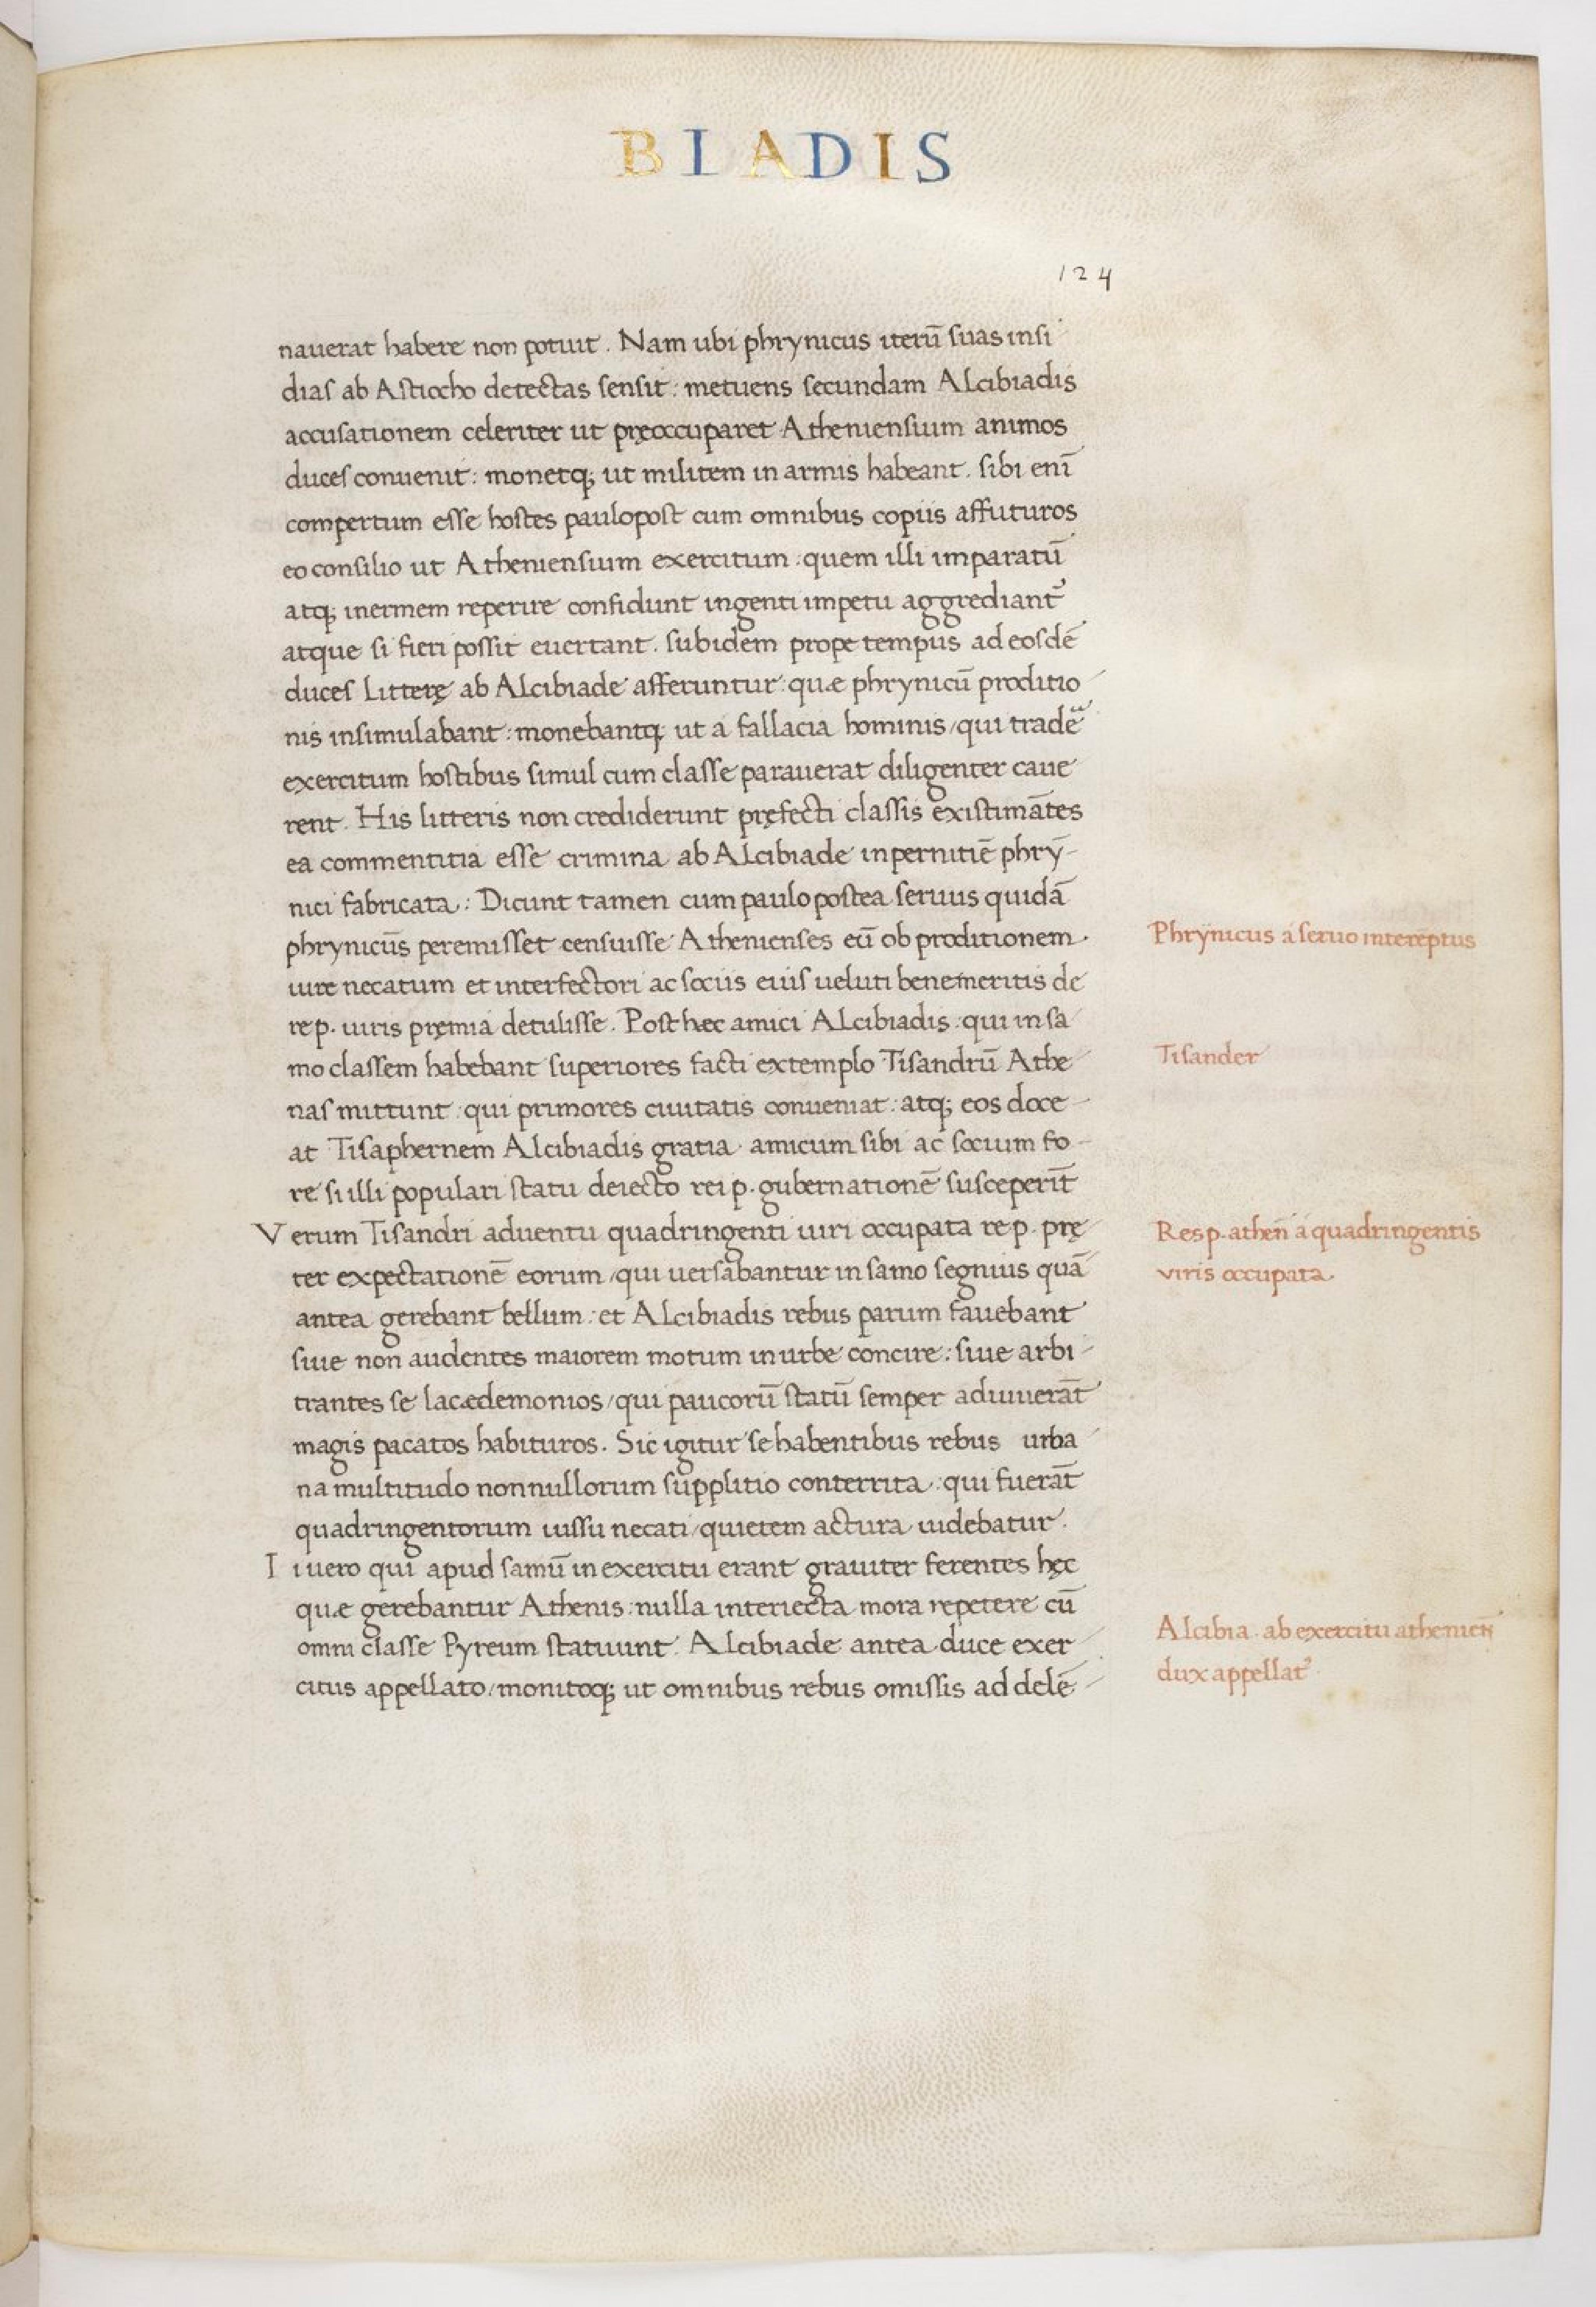 BIADIS
124
nauerat habere non potuit. Nam ubi phrynicus iterū suas insi
dias ab Astiocho detectas sensit: metuens secundam Alcibiadis
accusationem celeriter ut pręoccuparet Atheniensium animos
duces conuenit: monetq; ut militem in armis habeant. sibi enī
compertum esse hostes paulopost cum omnibus copiis affuturos
eo consilio ut Atheniensium exercitum: quem illi imparatū
atq; inermem reperire confidunt ingenti impetu aggrediant᾿
atque si fieri possit euertant. sub idem prope tempus ad eosdē
duces litterę ab Alcibiade afferuntur: quæ phrynicū proditio
nis insimulabant: monebantq; ut a fallacia hominis/qui tradē
exercitum hostibus simul cum classe parauerat diligenter caue
rent. His litteris non crediderunt pręfecti classis existimātes
ea commentitia esse crimina ab Alcibiade in pernitiē phry-
nici fabricata: Dicunt tamen cum paulo postea seruus quidā
phrynicūs peremisset censuisse Athenienses eū ob proditionem.
iure necatum et interfectori ac sociis eius ueluti benemeritis de
rep. uiris pręmia detulisse. Post hæc amici Alcibiadis: qui in sa
mo classem habebant superiores facti extemplo Tisandrū Athe
nas mittunt: qui primores ciuitatis conueniat: atq; eos doce-
at Tisaphernem Alcibiadis gratia amicum sibi ac socium fo-
re si illi populari statu deiecto rei p. gubernationē susceperīt
Verum Tisandri aduentu quadringenti uiri occupata re p. prę
ter expectationē eorum/qui uersabantur in samo segnius quā
antea gerebant bellum: et Alcibiadis rebus parum fauebant
siue non audentes maiorem motum in urbe concire: siue arbi-
trantes se lacædemonios/qui paucorū statū semper adiuuerāt
magis pacatos habituros. Sic igitur se habentibus rebus urba
na multitudo nonnullorum supplitio conterrita: qui fuerāt
quadringentorum iussu necati/quietem actura uidebatur.
Ii uero qui apud samū in exercitu erant grauiter ferentes hęc
quæ gerebantur Athenis: nulla interiecta mora repetere cū
omni classe Pyreum statuunt. Alcibiade antea duce exer
citus appellato/monitoq; ut omnibus rebus omissis ad delē-
Phrynicus a seruo interēptus
Tisander
Resp. athen̄ a quadringentis
viris occupata.
Alcibia. ab exercitu athenien̄
dux appellat᾿